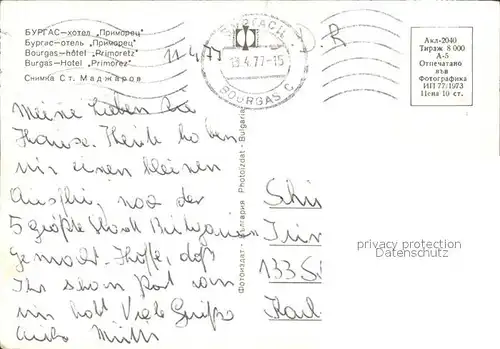 БУРГАС—хотел „Приморец"
Бургас—отель „Приморец"
Bourgas—hôtel „Primoretz"
Burgas—Hotel „Primorez"
Снимка Ст. Маджаров
11.4.77
13.4.77-15
BOURGAS C
Акл-2040
Тираж 8 000
А-5
Отпечатано
във
Фотографика
ИП 77/1973
Цена 10 ст.
Meine Lieben zu
Hause. Heute haben
wir einen kleinen
Ausflug nach der
5 größte Stadt Bulgarien
gemacht. Hoffe, daß
Ihr schon Post von
mir habt Viele Grüße
Mutti
Фотоиздат - България Photoizdat - Bulgarie
133
privacy protection
Datenschutz